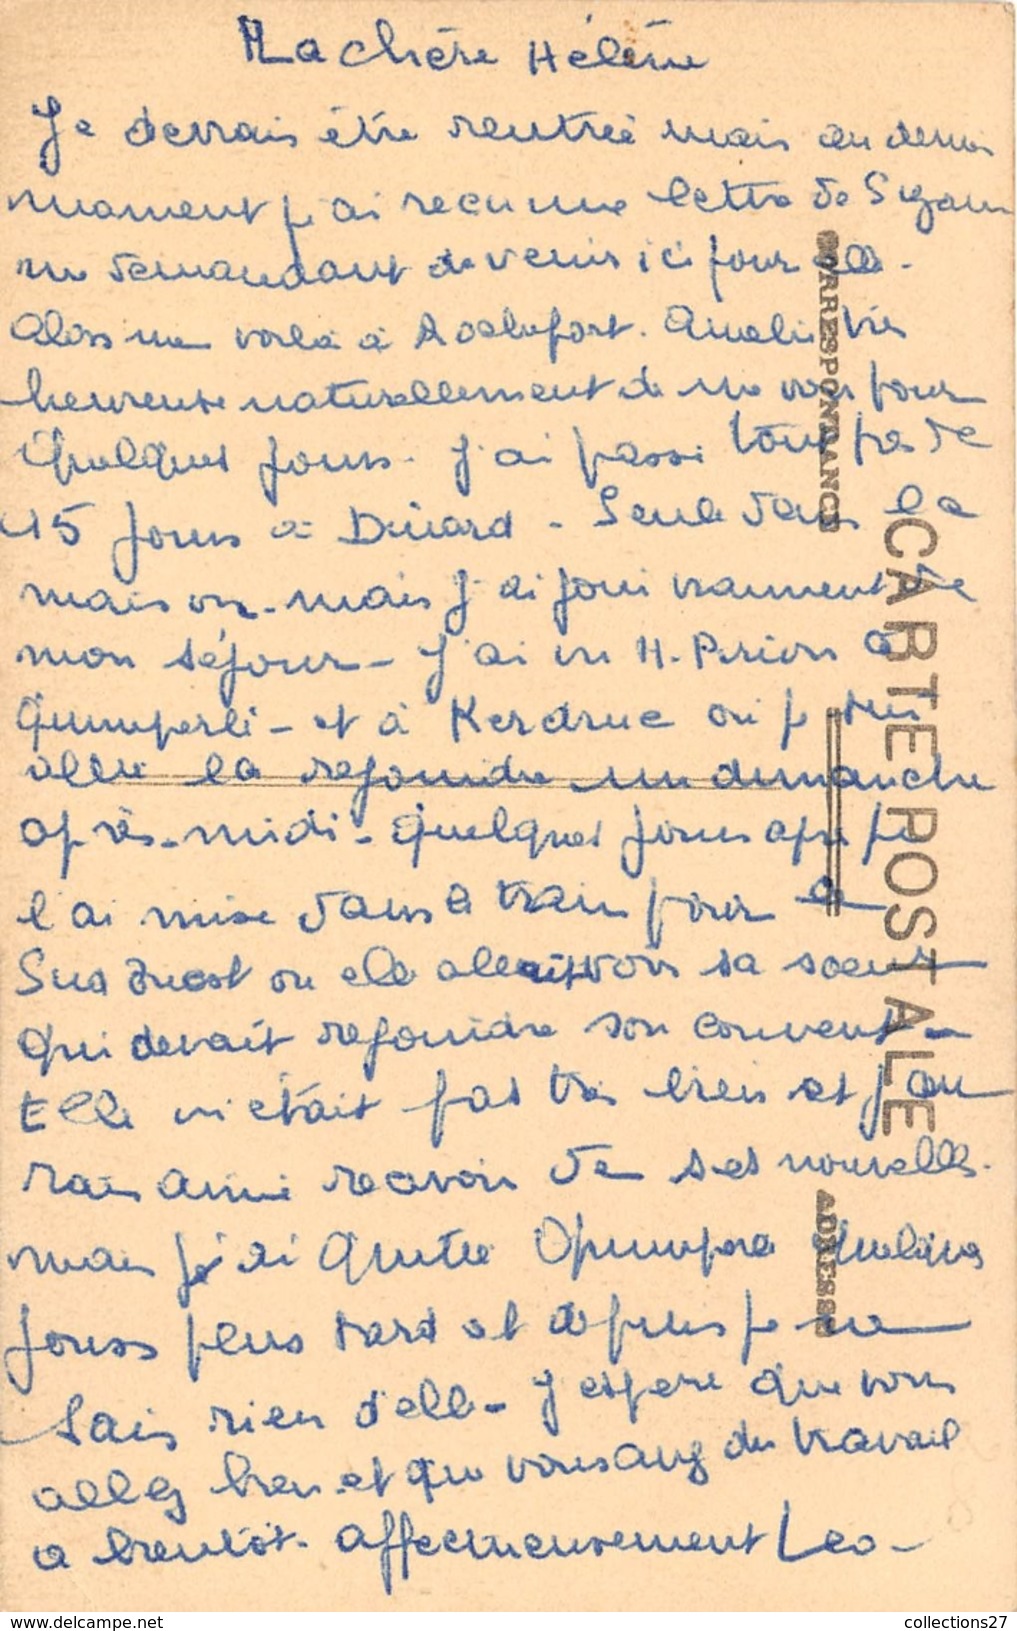 Ma chère Hélène
Je devrais être rentrée mais au dernier
moment j'ai reçu une lettre de Suzanne
me demandant de venir ici pour elle.
Alors me voilà à Rochefort. Amélie très
heureuse naturellement de me voir pour
quelques jours. J'ai passé tout près de
15 jours à Dinard - Seule dans la
maison - mais j'ai joui vraiment de
mon séjour - J'ai vu H. à
Quimperlé - et à Kerdruc où je suis
allée la rejoindre un dimanche
après-midi - quelques jours après je
l'ai mise dans le train pour le
Sud Ouest où elle allait voir sa soeur
qui devait rejoindre son couvent -
Elle n'était pas très bien et j'au
rais aimé recevoir de ses nouvelles.
mais j'ai quitté quelques
jours plus tard et depuis je ne
sais rien d'elle - J'espère que vous
allez bien et que vous avez du travail
a bientôt. affectueusement Leo -
CORRESPONDANCE
CARTE POSTALE
ADRESSE
collections27